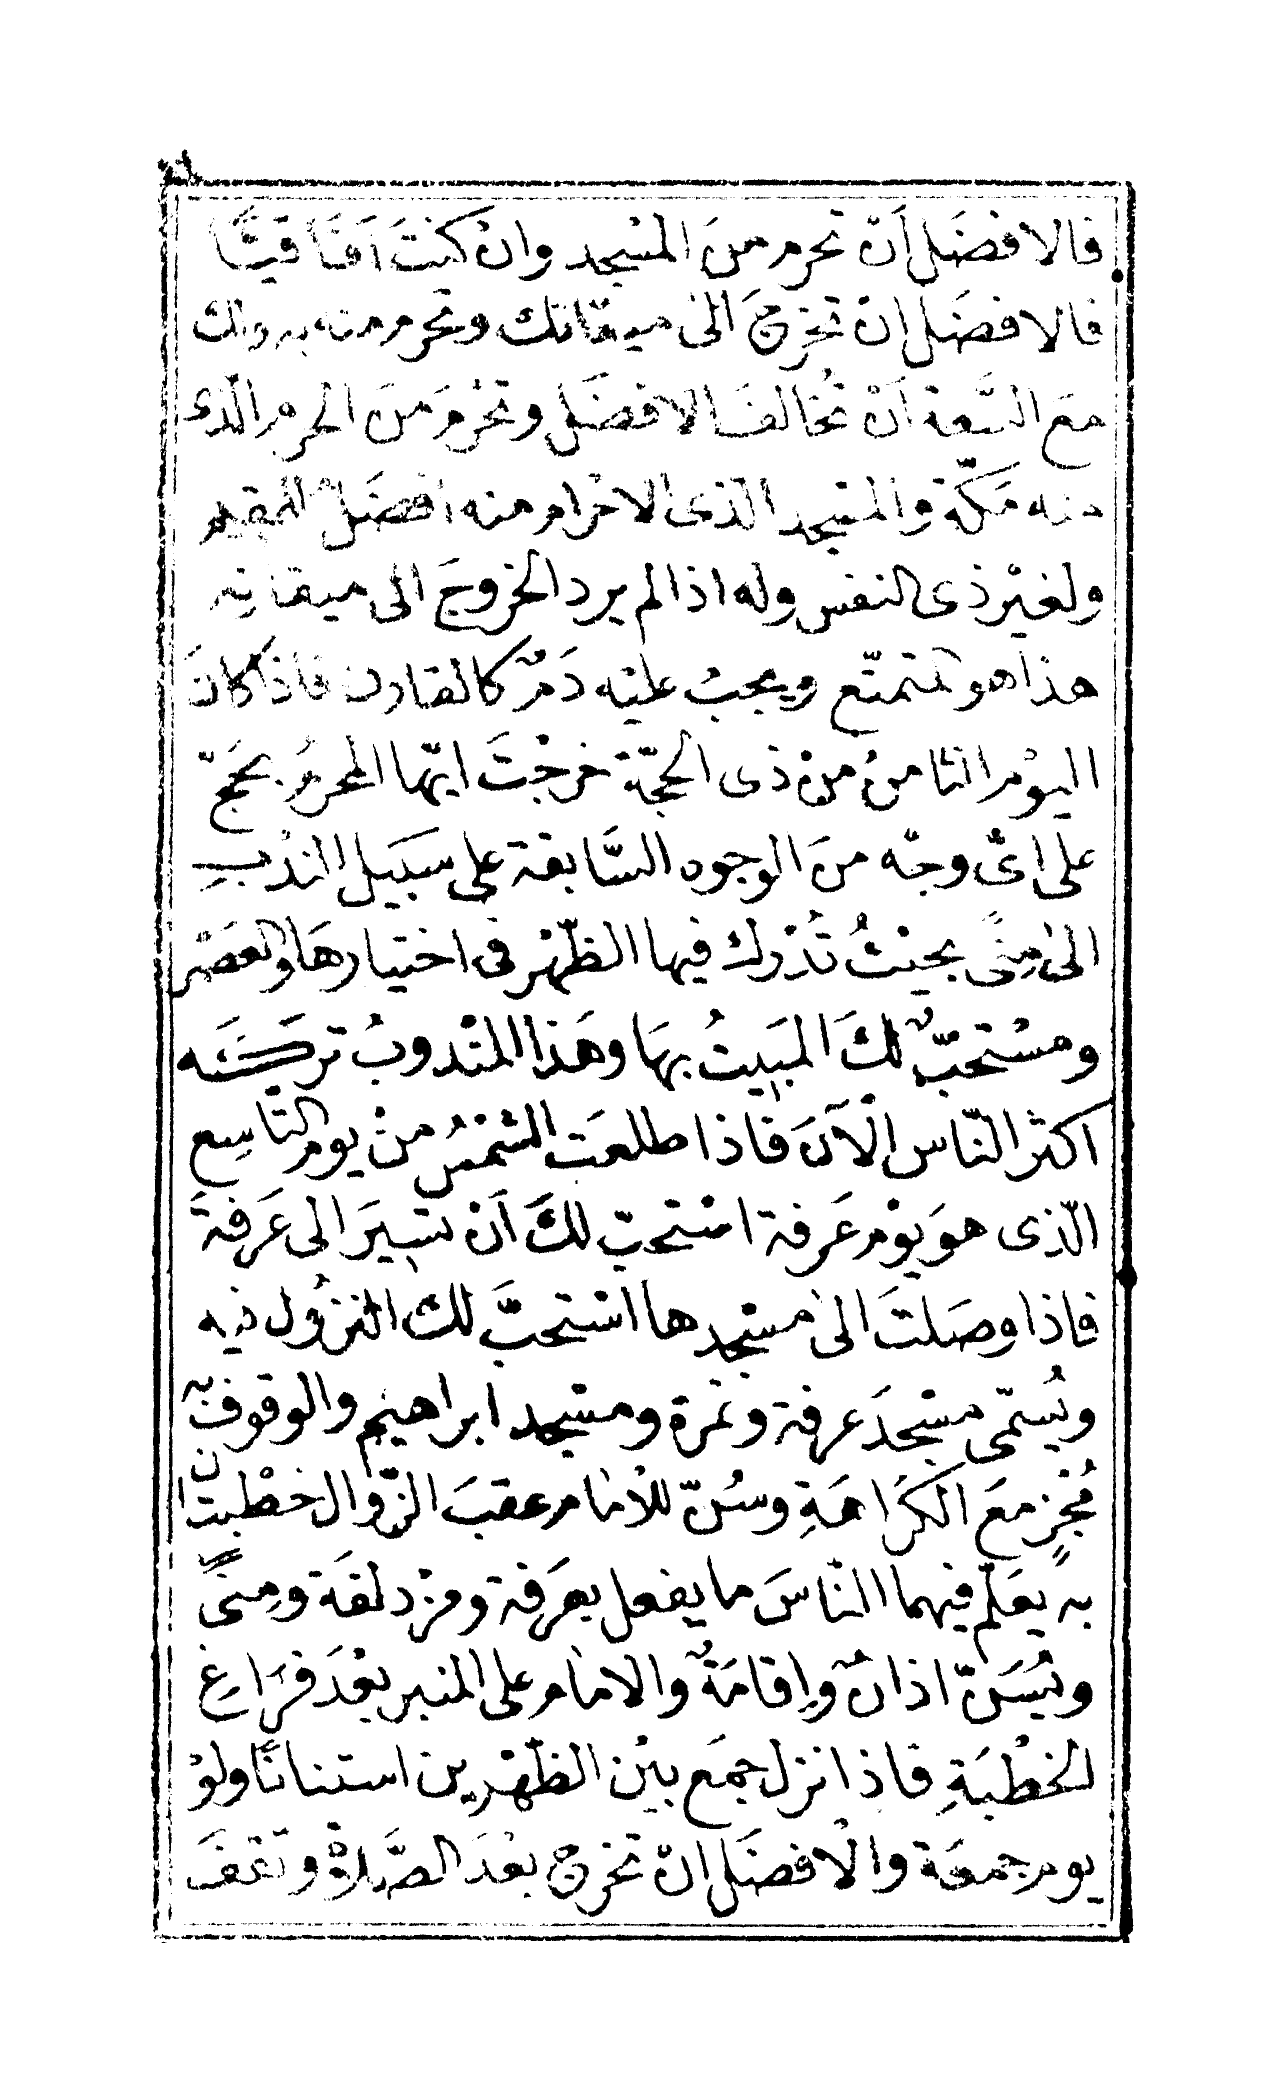 فالافضَل اَنْ تحرم منَ المسْجد وانْ كنتَ اَفَاقيًّا
فالافضَل انْ تخرجَ الىٰ ميقاتك وتحرم منه به ولك
مَعَ السَّعة اَنْ تُخالفَ الافضَل وتحْرمَ منَ الحرم الّذى
منه مَكّة والمسْجد الذى الاحْرام منه افضَلُ للمقيم
ولغيْر ذى النفس وله اذا لم يرد الخروجَ الى ميقاتِه
هذا هو المتمتّع ويجبُ عليْه دَمٌ كالقارن فاذا كانَ
اليوْم الثامنُ منْ ذى الحجّة خرجْتَ ايّها المحرمُ بحَجّ
على اىّ وجْه منَ الوجوه السَّابقة على سَبيل الندْبِ
الىٰ مِنًى بحيْثُ تُدْرك فيها الظّهْر فى اختيارهَا والعصْر
ومسْتحبٌّ لكَ المَبيتُ بهَا وهَذا المنْدوبُ تركَتْه
اكثر النّاس الْآنَ فاذا طلعَت الشمْسُ منْ يوم التّاسِع
الّذى هوَ يوْم عَرفة اسْتحبّ لكَ اَنْ تسِيَر الى عَرفةَ
فاذا وصَلتَ الىٰ مسْجدها اسْتحبَّ لك النزُول فيه
ويُسمّى مسْجدَ عرفة ونَمرة ومسْجد ابراهيم والوقوف به
مُجْزٍ معَ الكرَاهَةِ وسُنّ للاْمٰام عقبَ الزّوال خطْبتان
به يعَلّم فيهما النّاسَ ما يفعل بعَرفة ومزْدلفَة ومِنًى
ويُسَنّ اذانٌ وإقامَةٌ والامٰام على المنبر بعْدَ فرَاغِ
الخطْبَةِ فاذا نزل جمَع بيْن الظّهْرين استنانًا ولوْ
يوم جمعَة والْافضَل انْ تخرج بعْدَ الصَّلاةْ وتقفَ